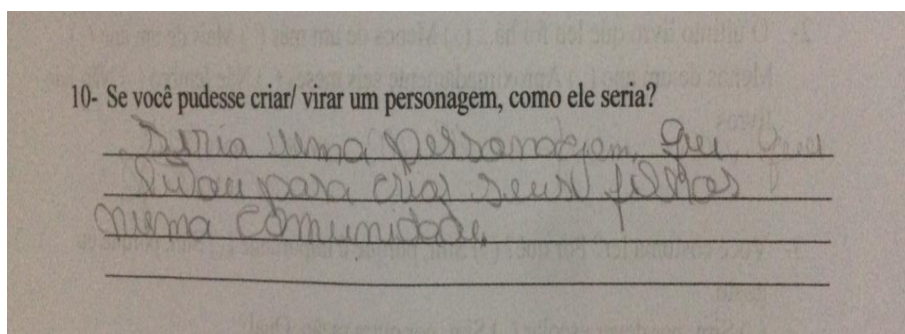 10- Se você pudesse criar/ virar um personagem, como ele seria?
Seria uma personagem que, que
lutou para criar seus filhos
numa comunidade.